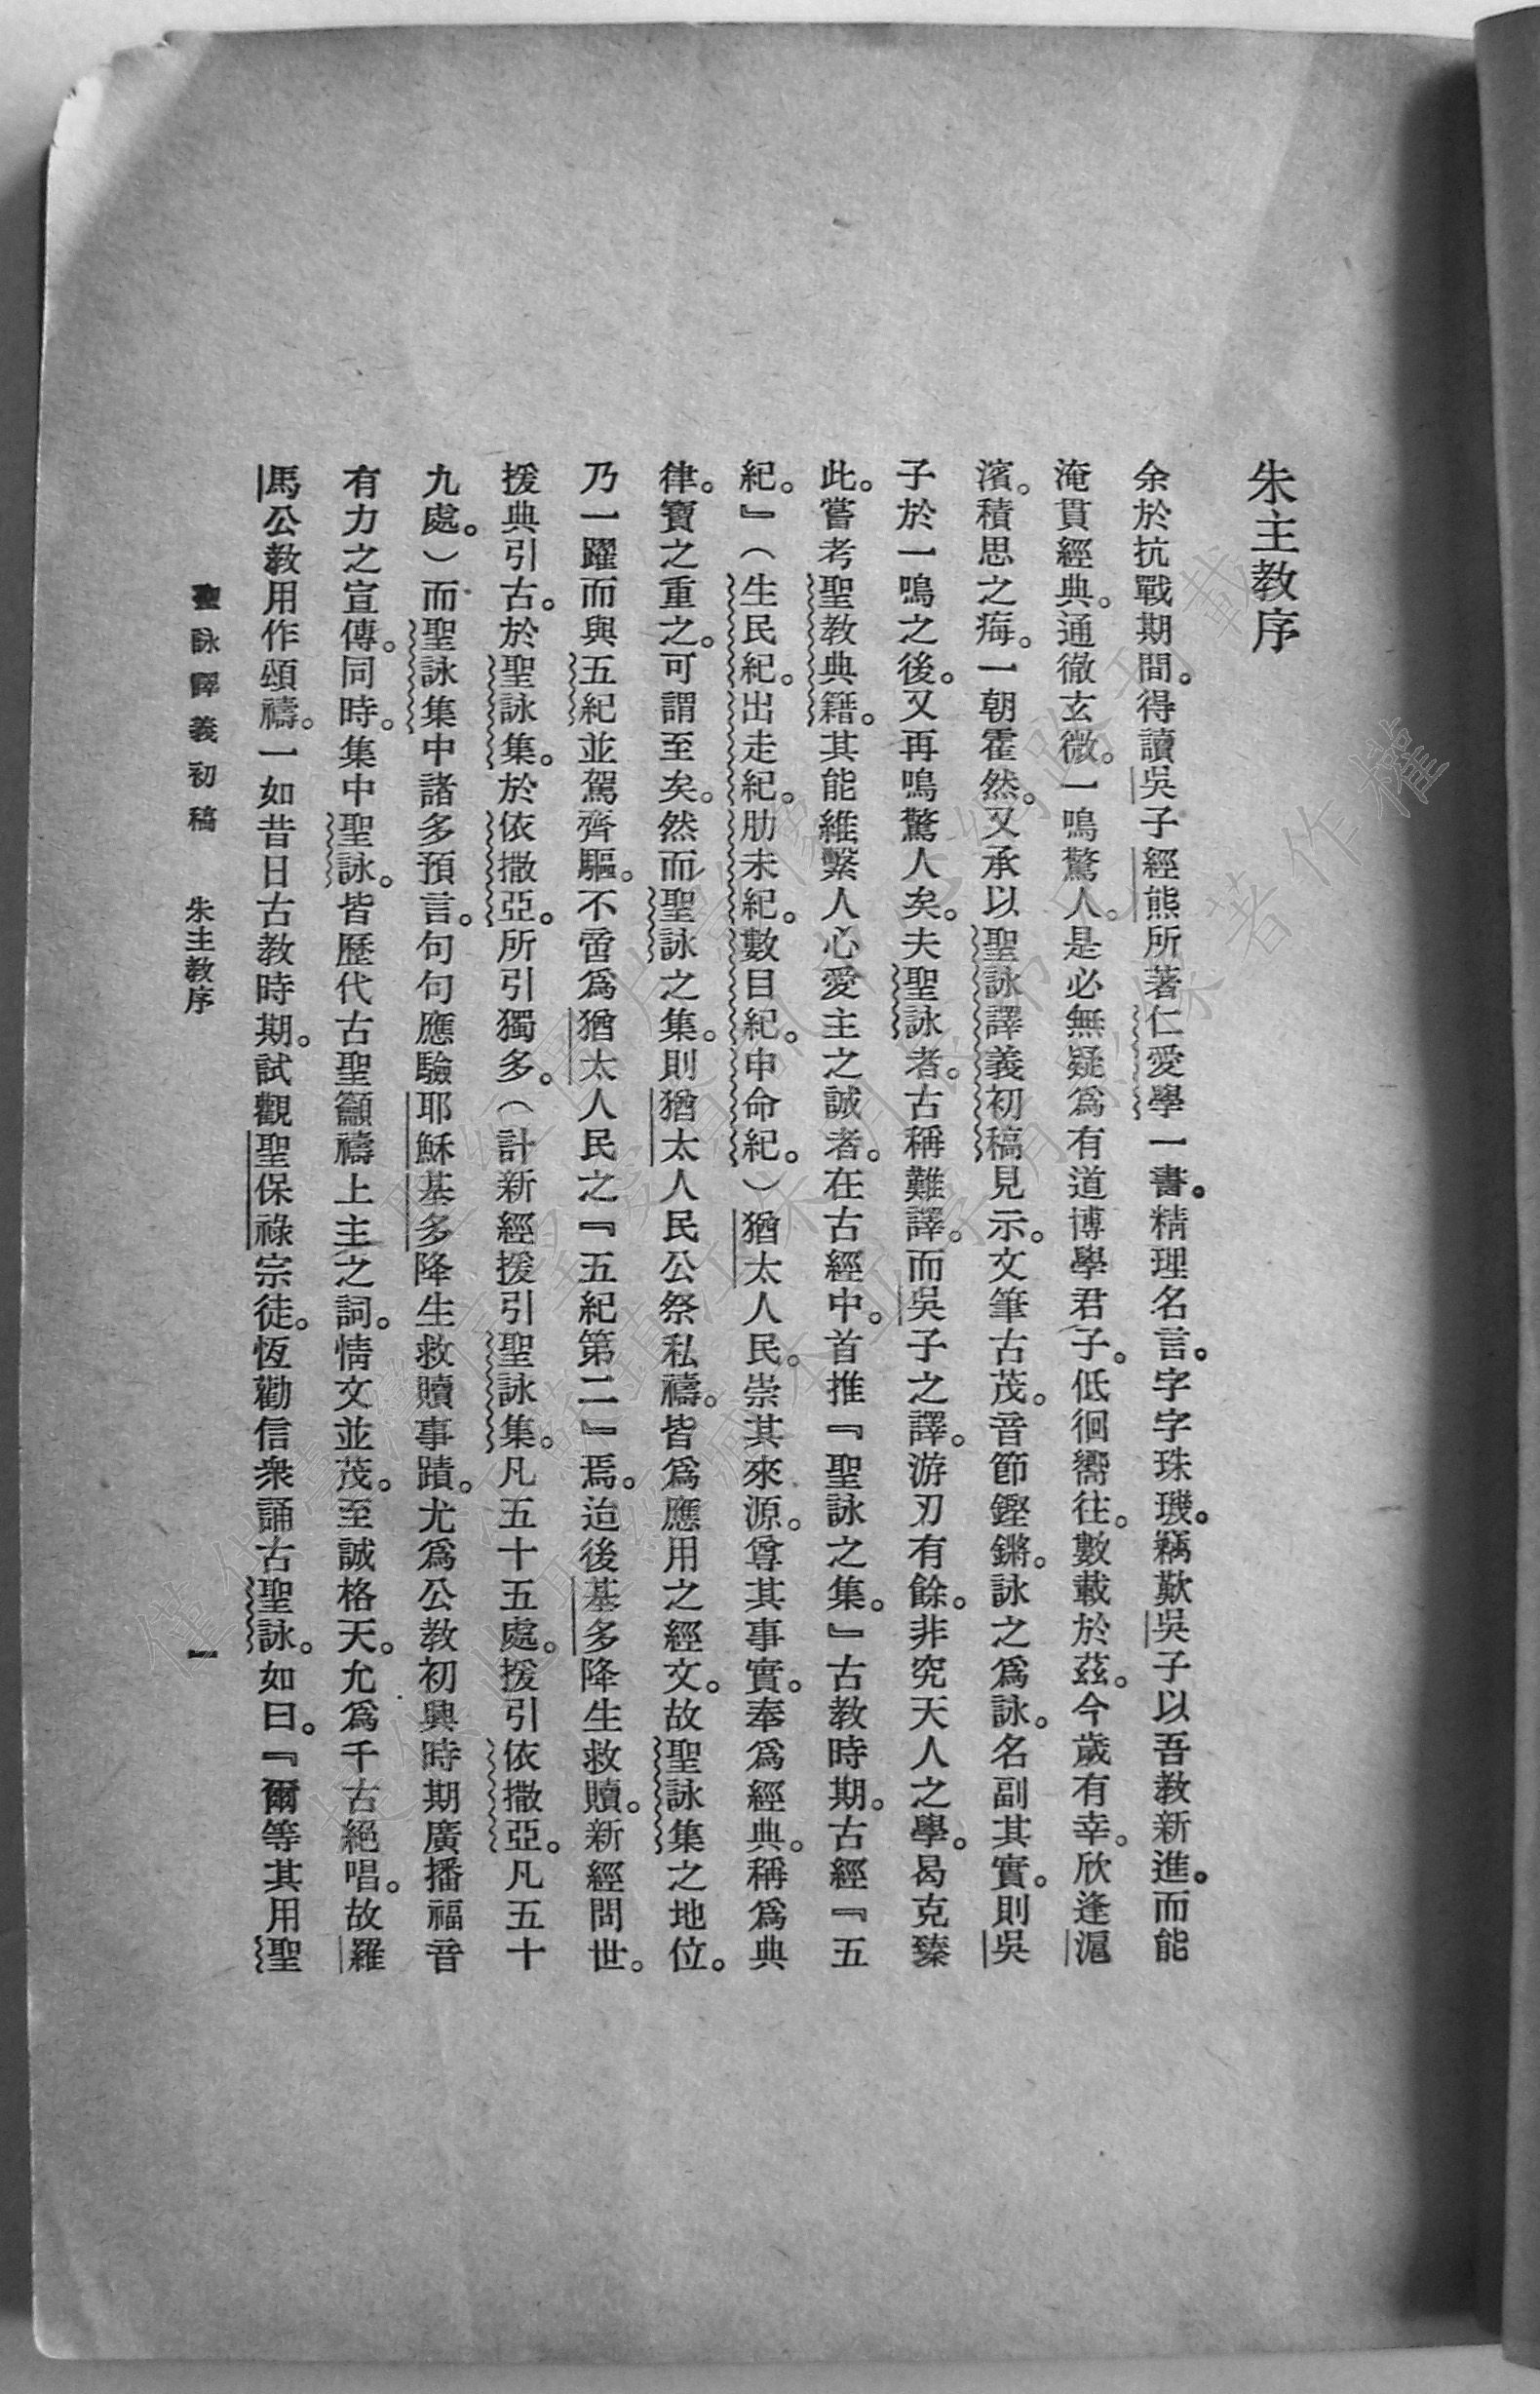 朱主教序
余於抗戰期間。得讀吳子經熊所著仁愛學一書。精理名言。字字珠璣。竊歎吳子以吾教新進。而能
淹貫經典。通徹玄微。一鳴驚人。是必無疑爲有道博學君子。低徊嚮往。數載於茲。今歲有幸。欣逢滬
濱。積思之痗。一朝霍然。又承以聖詠譯義初稿見示。文筆古茂。音節鏗鏘。詠之爲詠。名副其實。則吳
子於一鳴之後。又再鳴驚人矣。夫聖詠者。古稱難譯。而吳子之譯。游刃有餘。非究天人之學。曷克臻
此。嘗考聖教典籍。其能維繫人心愛主之誠者。在古經中。首推『聖詠之集。』古教時期。古經『五
紀。』（生民紀。出走紀。肋未紀。數目紀。申命紀。）猶太人民。崇其來源。尊其事實。奉爲經典。稱爲典
律。寶之重之。可謂至矣。然而聖詠之集。則猶太人民公祭私禱。皆爲應用之經文。故聖詠集之地位。
乃一躍而與五紀並駕齊驅。不啻爲猶太人民之『五紀第二』焉。迨後基多降生救贖。新經問世。
援典引古。於聖詠集。於依撒亞。所引獨多。（計新經援引聖詠集。凡五十五處。援引依撒亞。凡五十
九處。）而聖詠集中諸多預言。句句應驗耶穌基多降生救贖事蹟。尤爲公教初興時期廣播福音
有力之宣傳。同時。集中聖詠。皆歷代古聖籲禱上主之詞。情文並茂。至誠格天。允爲千古絕唱。故羅
馬公教用作頌禱。一如昔日古教時期。試觀聖保祿宗徒。恆勸信衆誦古聖詠。如曰。『爾等其用聖
聖詠譯義初稿　朱主教序　一